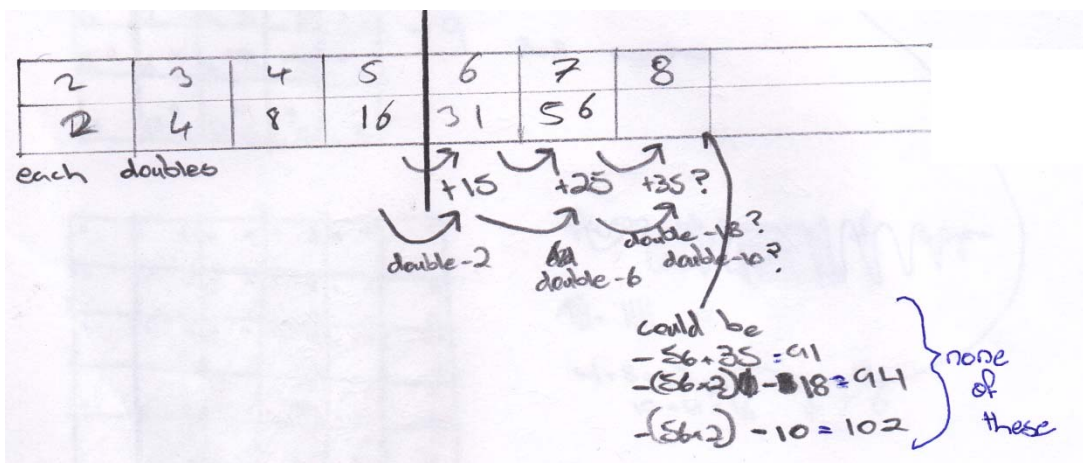 2 3 4 5 6 7 8
2 4 8 16 31 56
each doubles
+15 +25 +35?
double-2 double-6 double-18?
double-10?
could be
- 56+35=91
-(56×2) -18=94
-(56×2) -10=102
none
of
these